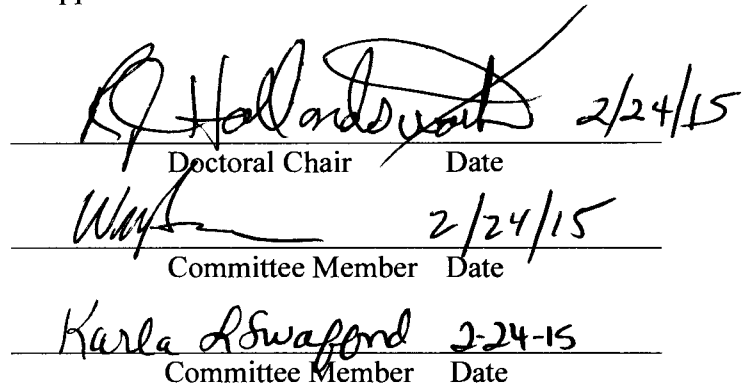 RJ Hollandsworth 2/24/15
Doctoral Chair Date
2/24/15
Committee Member Date
Karla L Swafford 2-24-15
Committee Member Date